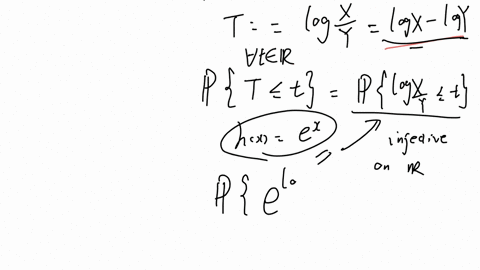 T := = log X/Y = log X - log Y
∀t∈ℝ
ℙ{T ≤ t} = ℙ{log X/Y ≤ t}
h(x) = e^x injective
on ℝ
ℙ{e^lo